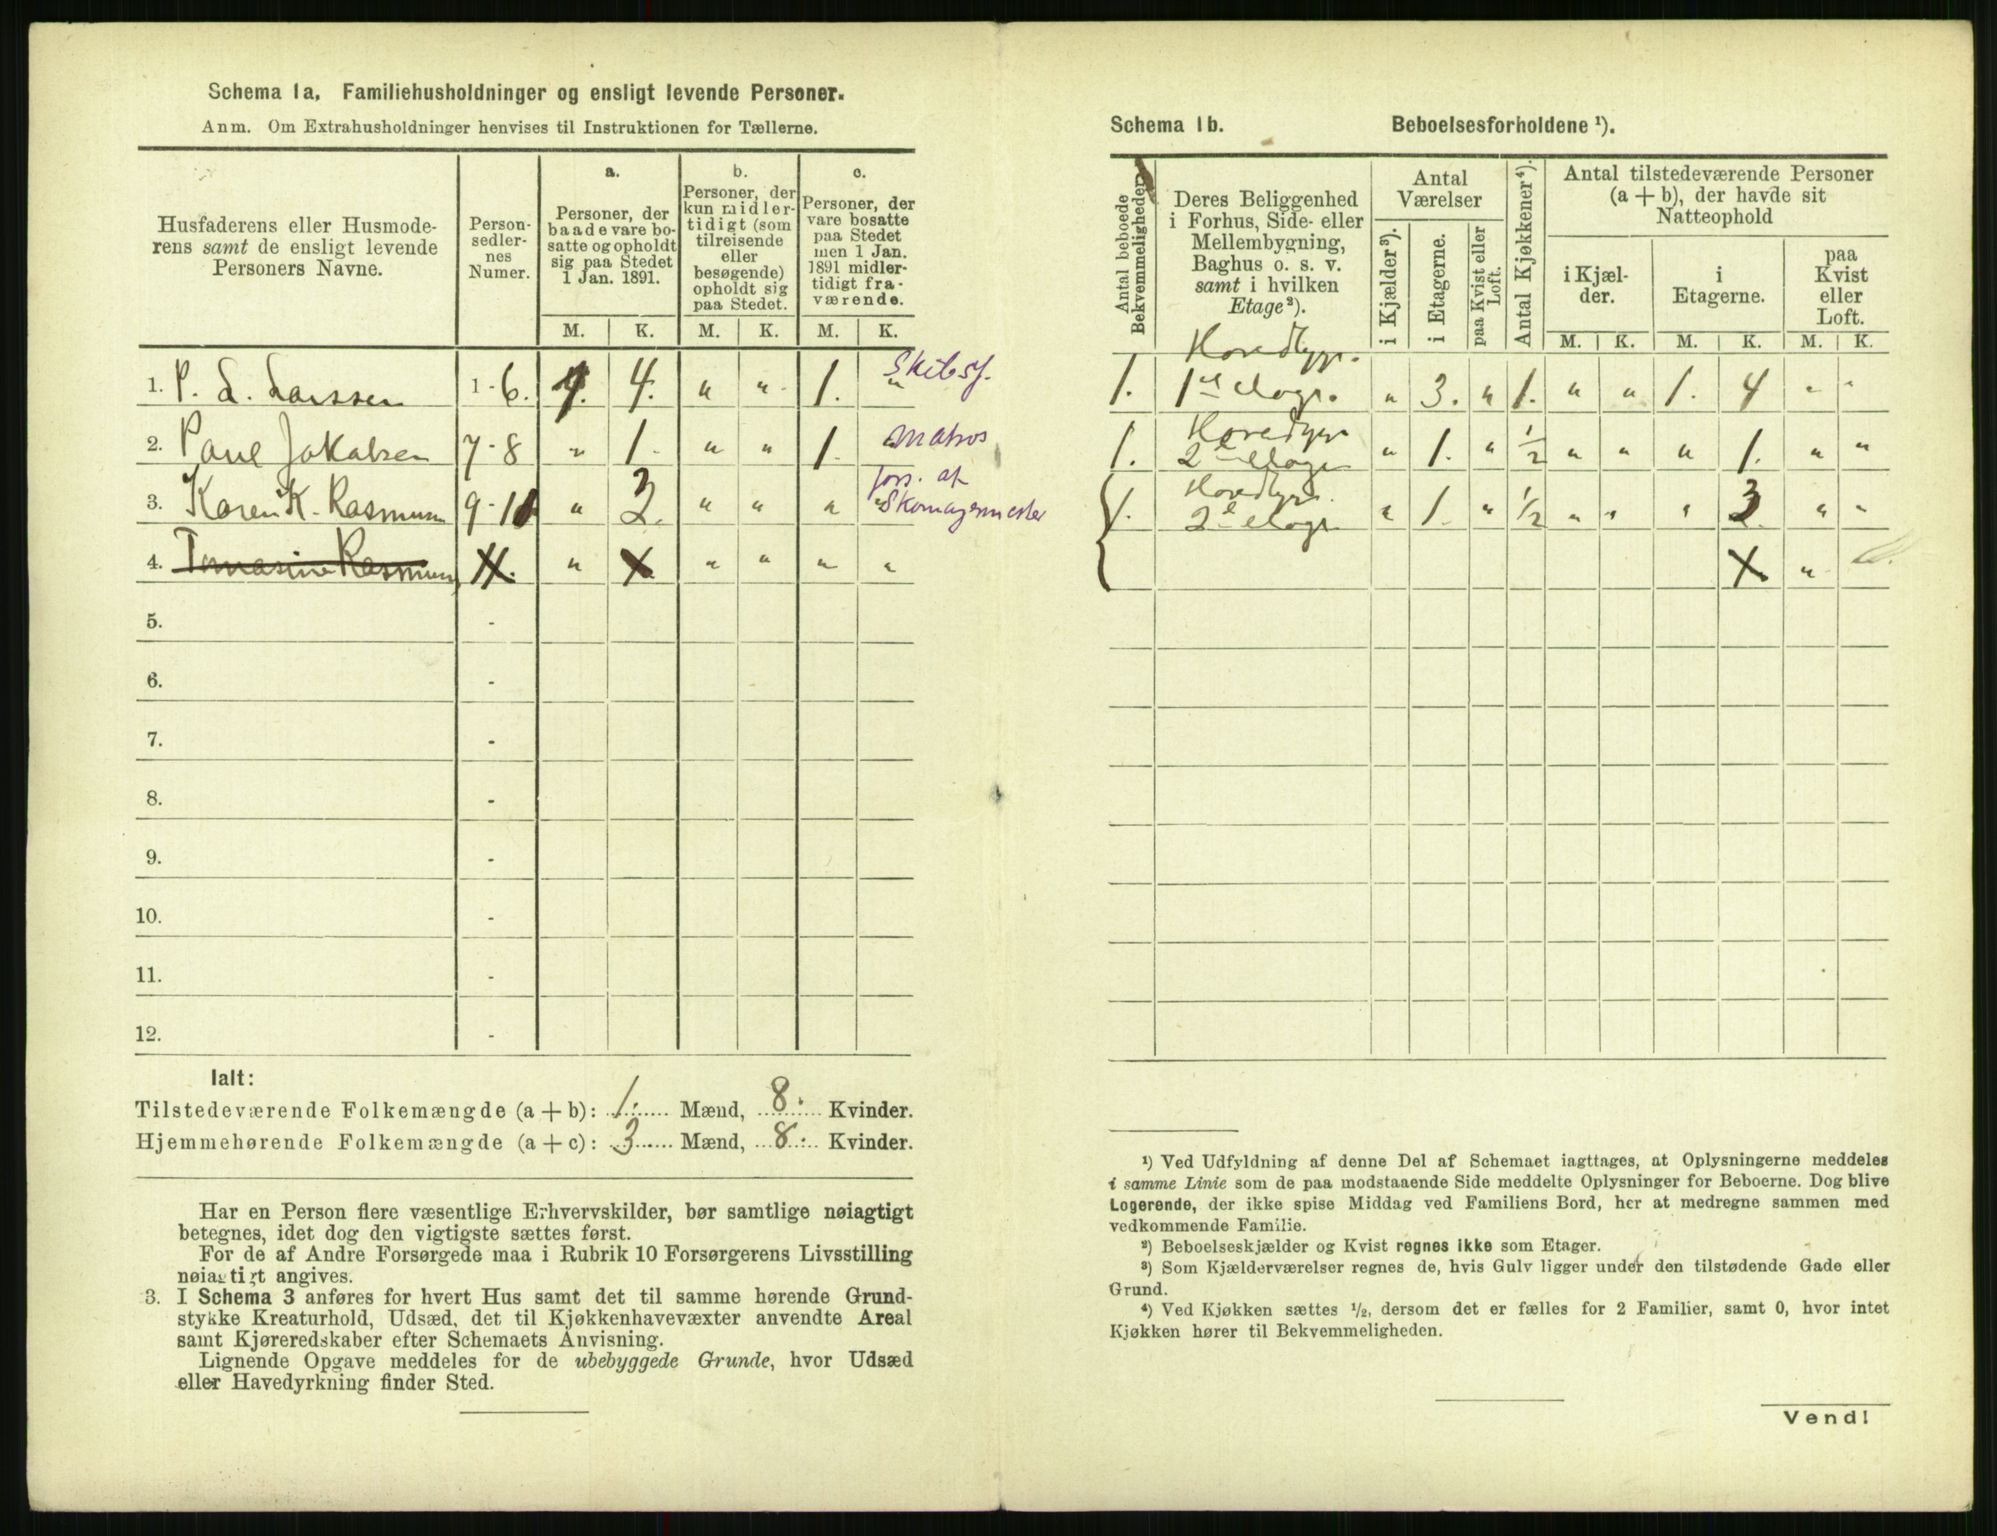 Schema 1a. Familiehusholdninger og ensligt levende Personer.
Anm. Om Extrahusholdninger henvises til Instruktionen for Tællerne.
Husfaderens eller Husmode-
rens samt de ensligt levende
Personers Navne.
Person-
sedler-
nes
Numer.
a.
Personer, der
baade vare bo-
satte og opholdt
sig paa Stedet
1 Jan. 1891.
b.
Personer, der
kun midler-
tidigt (som
tilreisende
eller
besøgende)
opholdt sig
paa Stedet.
c.
Personer, der
vare bosatte
paa Stedet
men 1 Jan.
1891 midler-
tidigt fra-
værende.
M. K. M. K. M. K.
1. P. L. Larssen 1-6. 1. 4. " " 1. " Skibsf.
2. Paul Jakobsen 7-8 " 1. " " 1. " Matros
3. Karen K. Rasmusen 9-11 " 3 2. " " " " fors. af
Skomagermester
4. Tomasine Rasmusen 11. " X " " " "
5. -
6. -
7. -
8. -
9. -
10. -
11. -
12. -
Ialt:
Tilstedeværende Folkemængde (a + b): 1. Mænd, 8. Kvinder.
Hjemmehørende Folkemængde (a + c): 3 Mænd, 8. Kvinder.
Har en Person flere væsentlige Erhvervskilder, bør samtlige nøiagtigt
betegnes, idet dog den vigtigste sættes først.
For de af Andre Forsørgede maa i Rubrik 10 Forsørgerens Livsstilling
nøiagtigt angives.
3. I Schema 3 anføres for hvert Hus samt det til samme hørende Grund-
stykke Kreaturhold, Udsæd, det til Kjøkkenhavevæxter anvendte Areal
samt Kjøreredskaber efter Schemaets Anvisning.
Lignende Opgave meddeles for de ubebyggede Grunde, hvor Udsæd
eller Havedyrkning finder Sted.
Schema 1b. Beboelsesforholdene ¹).
Antal beboede
Bekvemmeligheder.
Deres Beliggenhed
i Forhus, Side- eller
Mellembygning,
Baghus o. s. v.
samt i hvilken
Etage²).
Antal
Værelser
i Kjælder³).
i Etagerne.
paa Kvist eller
Loft.
Antal Kjøkkener⁴).
Antal tilstedeværende Personer
(a + b), der havde sit
Natteophold
i Kjæl-
der.
i
Etagerne.
paa
Kvist
eller
Loft.
M. K. M. K. M. K.
Hovedbygn.
1. 1ste Etage. " 3. " 1. " " 1. 4 " "
Hovedbygn
1. 2den Etage " 1. " ½ " " " 1. " "
Hovedbygn.
1. 2den Etage " 1. " ½ " " " 3 " "
X " "
¹) Ved Udfyldning af denne Del af Schemaet iagttages, at Oplysningerne meddeles
i samme Linie som de paa modstaaende Side meddelte Oplysninger for Beboerne. Dog blive
Logerende, der ikke spise Middag ved Familiens Bord, her at medregne sammen med
vedkommende Familie.
²) Beboelseskjælder og Kvist regnes ikke som Etager.
³) Som Kjælderværelser regnes de, hvis Gulv ligger under den tilstødende Gade eller
Grund.
⁴) Ved Kjøkken sættes ½, dersom det er fælles for 2 Familier, samt 0, hvor intet
Kjøkken hører til Bekvemmeligheden.
Vend!